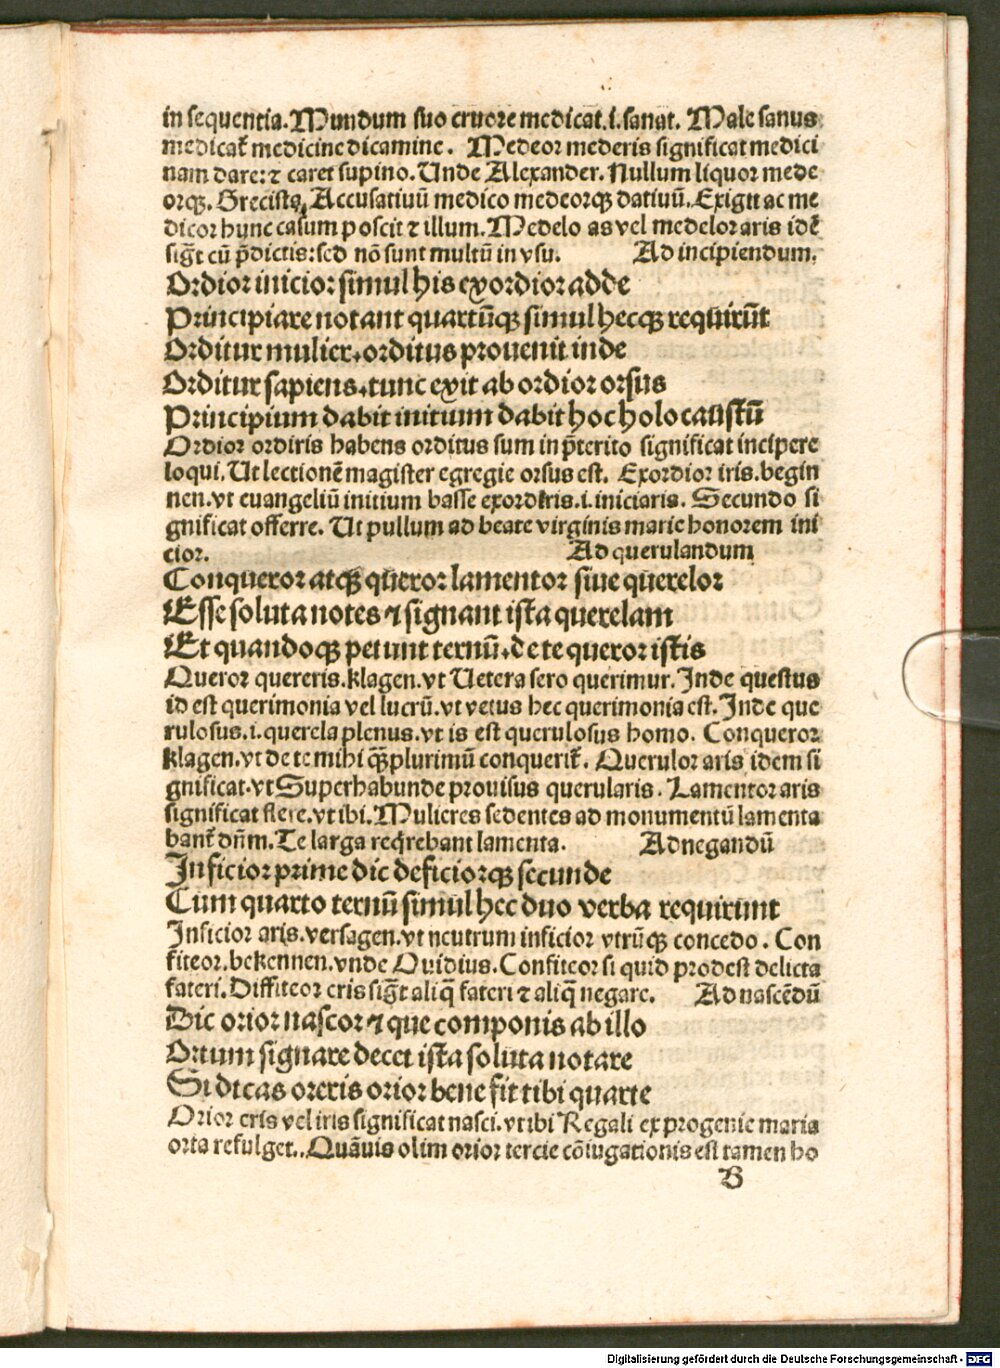 in sequentia. Mundum suo cruore medicat .i. sanat. Male sanus
medicat᷑ medicine dicamine. Medeor mederis significat medici
nam dare: ⁊ caret supino. Unde Alexander. Nullum liquor mede
orq₃. Grecista. Accusatiuū medico medeorq₃ datiuū. Exigit ac me
dicor hunc casum poscit ⁊ illum. Medelo as vel medelor aris idē
sigt᷑ cū p̄dictis: sed nō sunt multū in vsu. Ad incipiendum.
Ordior inicior simul his exordior adde
Principiare notant quartūq₃ simul hecq₃ requirūt
Orditur mulier. orditus prouenit inde
Orditur sapiens. tunc exit ab ordior orsus
Principium dabit initium dabit hoc holocaustū
Ordior ordiris habens orditus sum in p̄terito significat incipere
loqui. Ut lectionē magister egregie orsus est. Exordior iris. begin
nen. vt euangeliū initium basse exordiris .i. iniciaris. Secundo si
gnificat offerre. Ut pullum ad beate virginis marie honorem ini
cior. Ad querulandum
Conqueror atq₃ queror lamentor siue querelor
Esse soluta notes ⁊ signant ista querelam
Et quandoq₃ petunt ternū. de te queror istis
Queror quereris. klagen. vt Uetera sero querimur. Inde questus
id est querimonia vel lucrū. vt vetus hec querimonia est. Inde que
rulosus .i. querela plenus. vt is est querulosus homo. Conqueror
klagen. vt de te mihi qq₃ plurimū conquerit᷑. Querulor aris idem si
gnificat. vt Superhabunde prouisus querularis. Lamentor aris
significat flere. vt ibi. Mulieres sedentes ad monumentū lamenta
bant᷑ dn̄m. Te larga req̇rebant lamenta. Ad negandū
Inficior prime dic deficiorq₃ secunde
Cum quarto ternū simul hec duo verba requirunt
Inficior aris. versagen. vt neutrum inficior vtrūq₃ concedo. Con
fiteor. bekennen. vnde Ouidius. Confiteor si quid prodest delicta
fateri. Diffiteor eris sigt᷑ aliq̄ fateri ⁊ aliq̄ negare. Ad nascēdū
Dic orior nascor ⁊ que componis ab illo
Ortum signare decet ista soluta notare
Si dicas oreris orior bene fit tibi quarte
Orior eris vel iris significat nasci. vt ibi Regali ex progenie maria
orta refulget.. Quāuis olim orior tercie cōiugationis est tamen ho
B
Digitalisierung gefördert durch die Deutsche Forschungsgemeinschaft - DFG